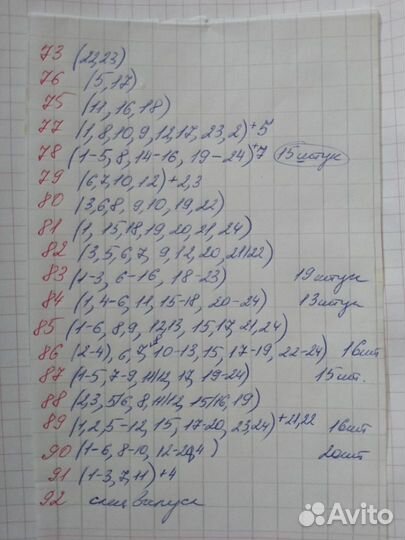 73 (22,23)
76 (5,17)
75 (11, 16, 18)
77 (1, 8, 10, 9, 12, 17, 23, 2)+5
78 (1-5, 8, 14-16, 19-24)+7 15 штук
79 (6, 7, 10, 12)+2,3
80 (3,6,8, 9,10, 19, 22)
81 (1, 15, 18, 19, 20, 21, 24)
82 (3, 5, 6, 7, 9, 12, 20, 21/22)
83 (1-3, 6-16, 18-23) 19 штук
84 (1, 4-6, 11, 15-18, 20-24) 13 штук
85 (1-6, 8,9, 12,13, 15,17, 21, 24)
86 (2-4), 6, 7, 8 10-13, 15, 17-19, 22-24) 16 шт
87 (1-5, 7-9, 11/12, 17, 19-24) 15 шт.
88 (2,3, 5/6, 8, 11/12, 15/16, 19)
89 (1, 2, 5-12, 15, 17-20, 23,24)+21,22 16 шт
90 (1-6, 8-10, 12-20,4) 20 шт
91 (1-3, 7, 11)+4
92
Avito